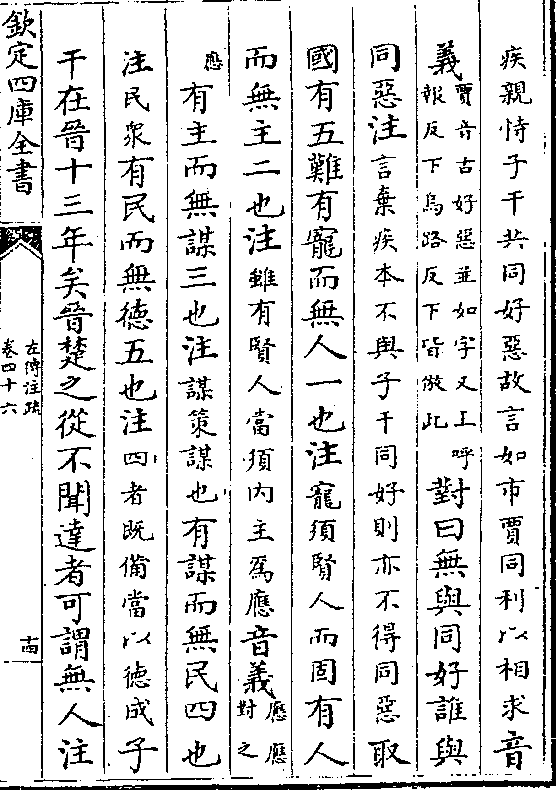 疾親恃子干共同好惡故言如市賈同利以相求音
義賈音古好惡並如字又上呼
報反下烏路反下皆倣此
對曰無與同好誰與
同惡注言棄疾本不與子干同好則亦不得同惡取
國有五難有寵而無人一也注寵須賢人而固有人
而無主二也注雖有賢人當須内主爲應音義應應
對之
應
有主而無謀三也注謀策謀也有謀而無民四也
注民衆有民而無德五也注四者既備當以德成子
干在晉十三年矣晉楚之從不聞達者可謂無人注
欽定四庫全書
左傳注疏
卷四十六
十四